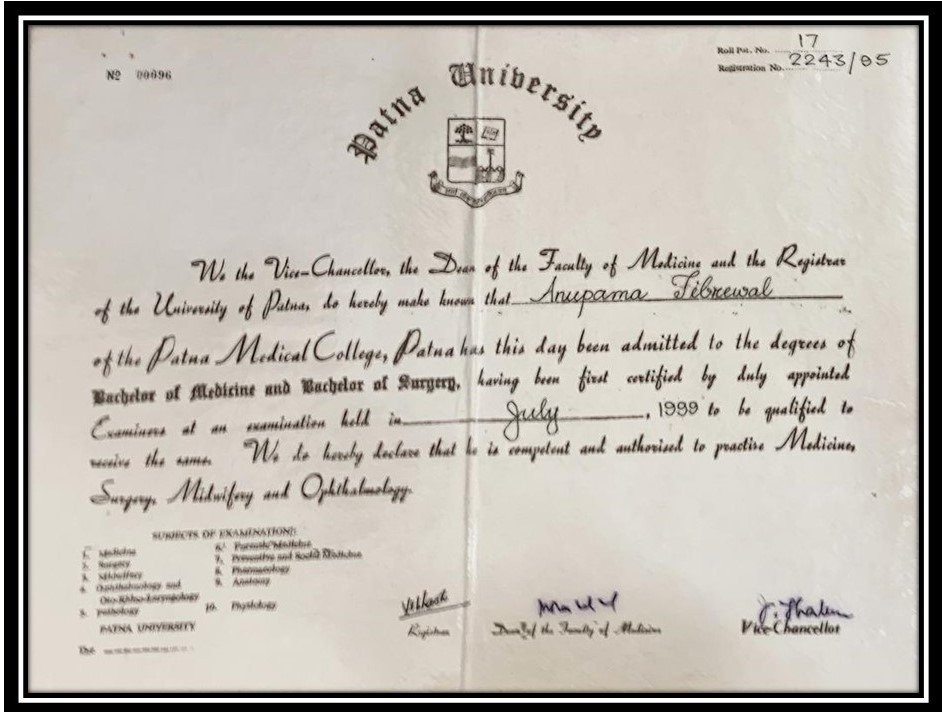 Nº 00096
Roll Pat. No. 17
Registration No. 2243/95
Patna University
We the Vice-Chancellor, the Dean of the Faculty of Medicine and the Registrar
of the University of Patna, do hereby make known that Anupama Tibrewal
of the Patna Medical College, Patna has this day been admitted to the degrees of
Bachelor of Medicine and Bachelor of Surgery, having been first certified by duly appointed
Examiners at an examination held in July, 1999 to be qualified to
receive the same. We do hereby declare that he is competent and authorised to practise Medicine,
Surgery, Midwifery and Ophthalmology.
SUBJECTS OF EXAMINATION:
1. Medicine
2. Surgery
3. Midwifery
4. Ophthalmology and
Oto-Rhino-Laryngology
5. Pathology
6. Forensic Medicine
7. Preventive and Social Medicine
8. Pharmacology
9. Anatomy
10. Physiology
PATNA UNIVERSITY
The
Registrar
Dean of the Faculty of Medicine
Vice-Chancellor